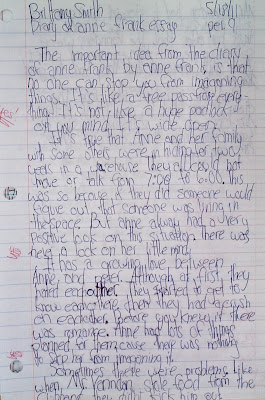 Brittany Smith
Diary of anne frank essay per. 9
The important idea from the diary
of anne frank, by anne frank, is that
no one can stop you from imagining
things. It's like a free pass to
thing. It's not like a huge padlock
on you mind, it's wide open.
It's true that Anne and her family
with some others were in hiding for two
years in a warehouse. They could not
move or talk from to 6:00. this
was so because if they did someone would
figure out that someone was living in
the space. But anne always had a very
positive look on this situation. there was
never a lock on her little mind.
It has a growing love between
Anne, and peter. Although at first, they
hated eachother. They started to get to
know eachother, then they had a crush
on eachother. before you knew it there
was romance. Anne had lots of things
planned for them, cause there was nothing
to stop her from imagining it.
Sometimes there were problems. Like
when, Mr. Vanndan stole food from the
they didn't kick him out